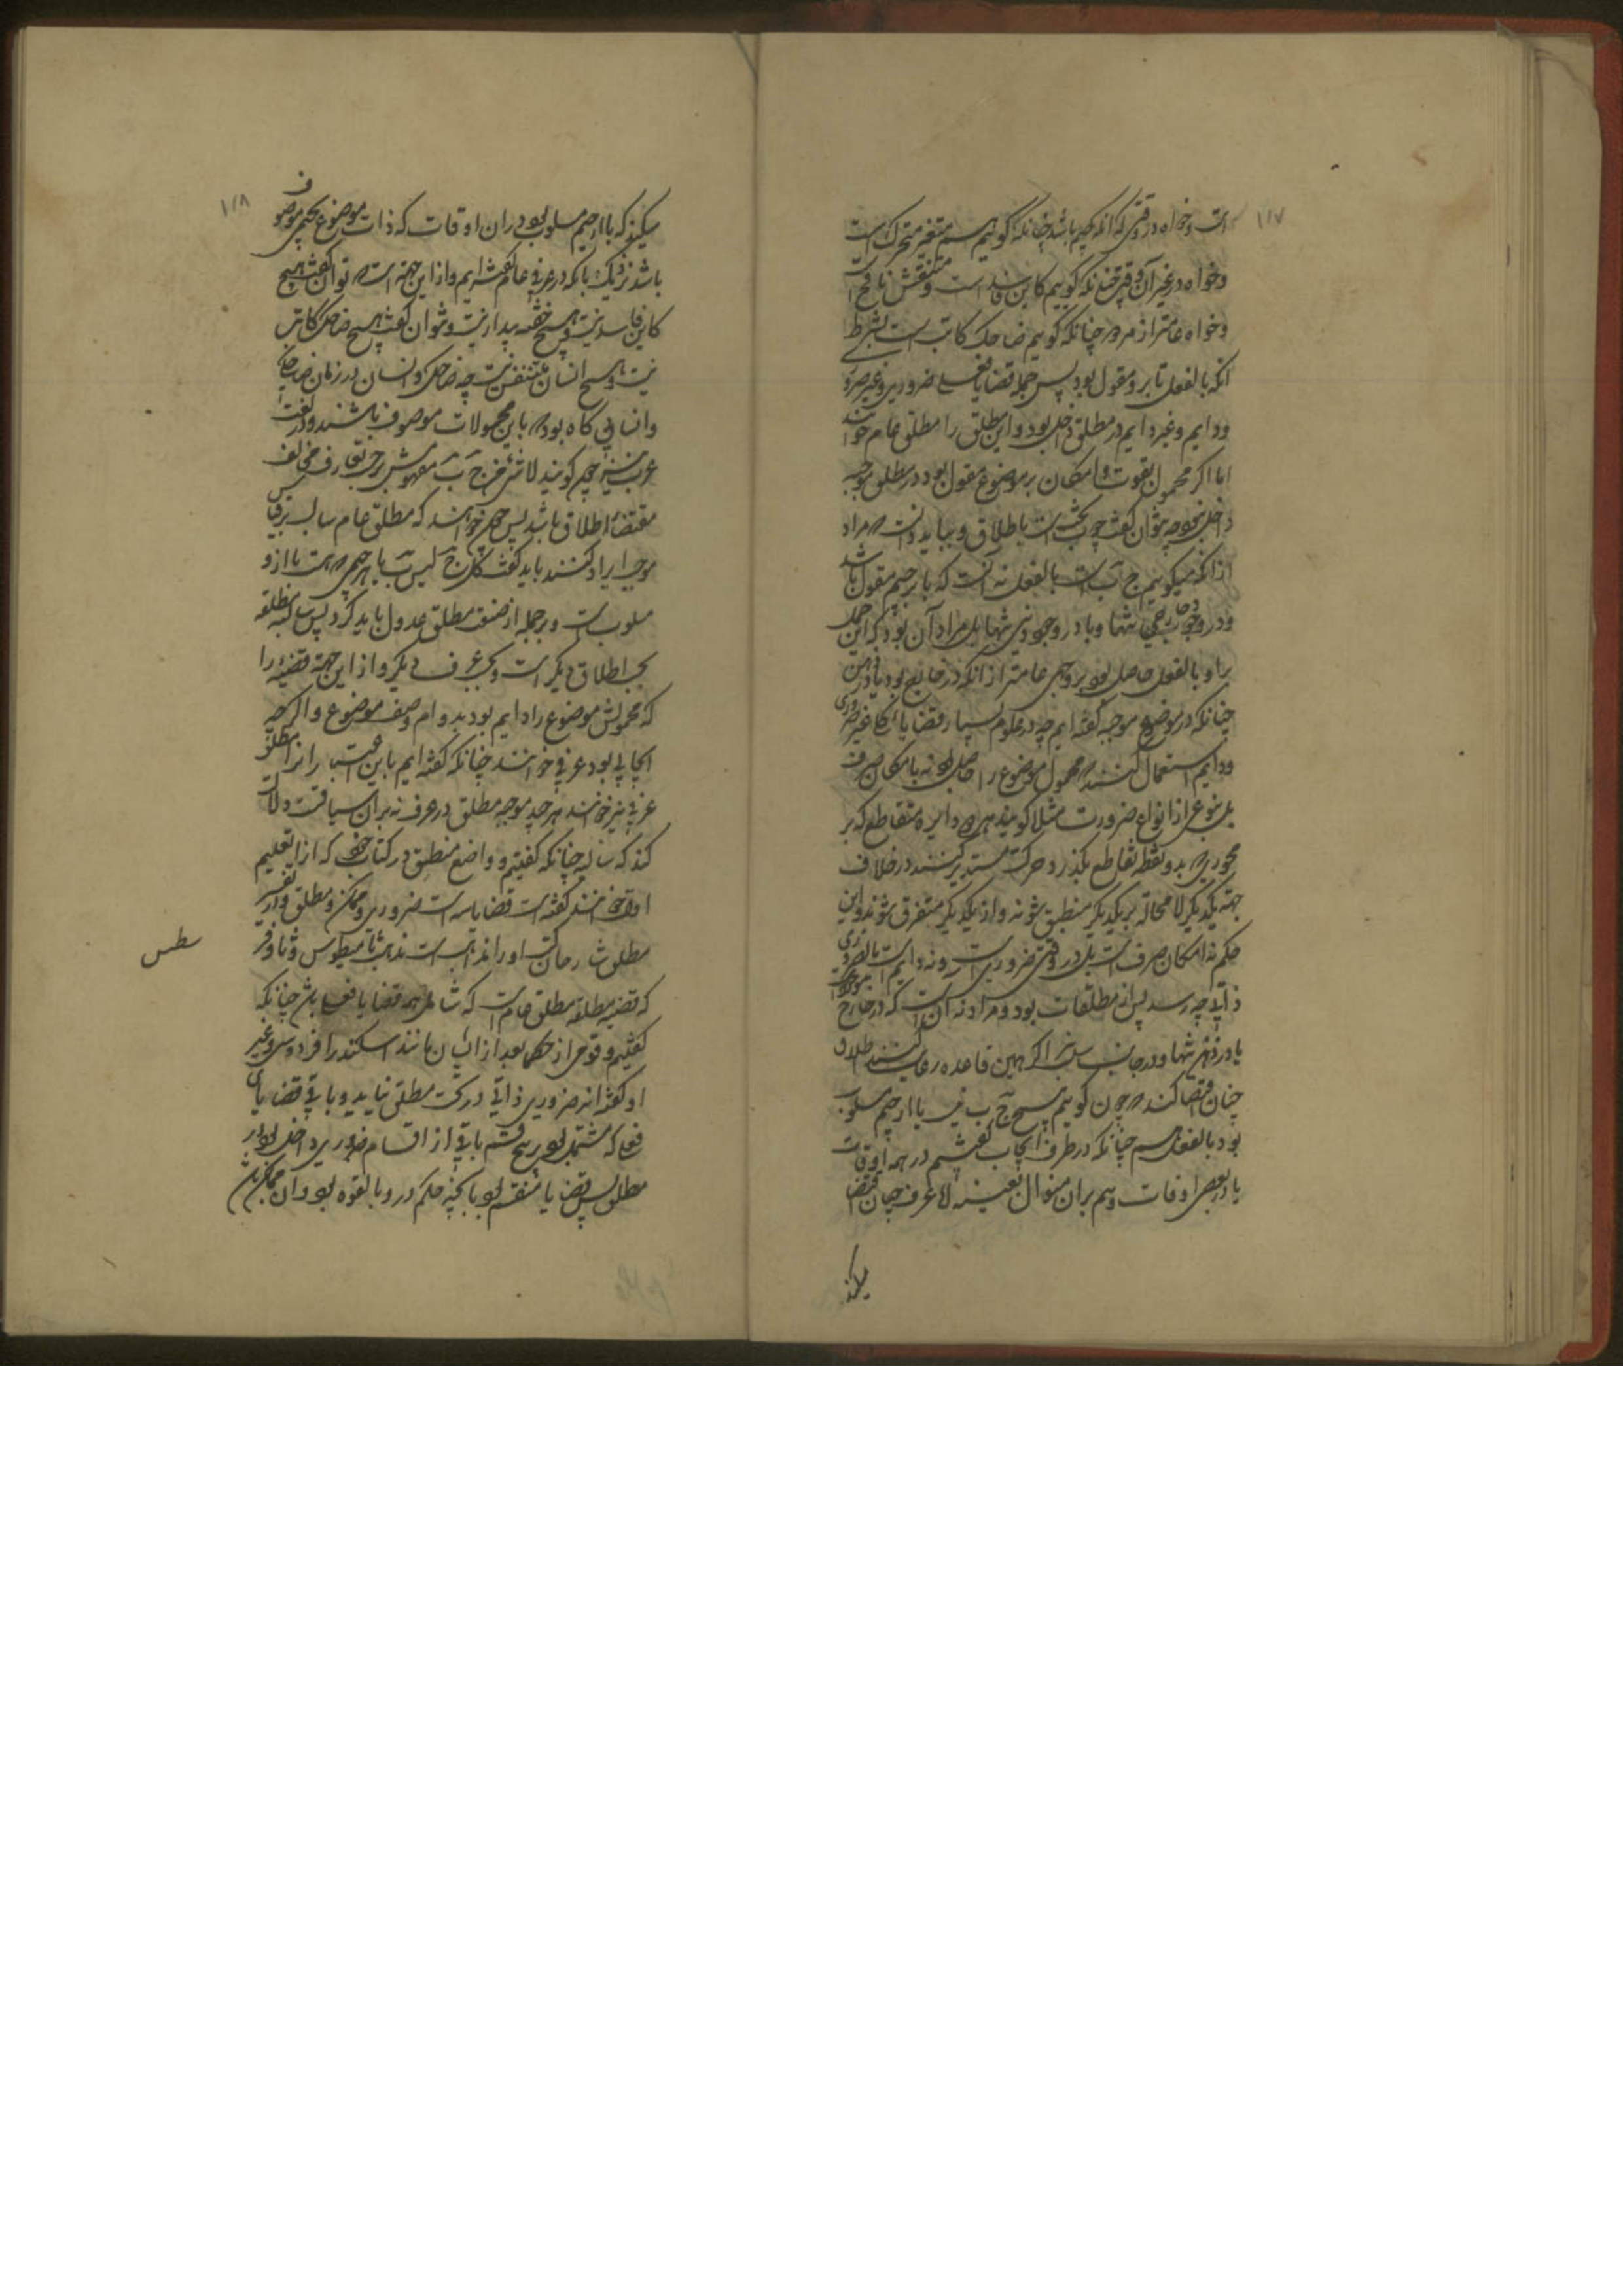 ۱۱۷
است و خواه در وقتی که انکه جسم باشد چنانکه گوییم جسم متغیر متحرک است
و خواه در غیر آن وقت چنانکه گوییم کاین فاسد است و متنفس نایم است
و خواه عامتر از هر دو چنانکه گوییم ضاحک کاتب است بشرط
انکه بالفعل بر و مقول بود پس جمله قضایا فعلی ضروری و غیر ضروری
و دایم و غیر دایم در مطلق داخل بود و این مطلق را مطلق عام خوانند
اما اگر محمول بقوت و امکان بر موضوع مقول بود در مطلق
داخل نبود چه نتوان گفت چ ب است باطلاق و بباید دانست که مراد
از انکه میگوییم ج ب است بالفعل نه آنست که با بر جیم مقول باشد
و در وجود خارجی تنها و یا در وجود ذهنی تنها بل مراد آن بود که این حمل
را و بالفعل حاصل بود بر وجهی عامتر از انکه در خارج بود یا در ذهن
چنانکه در موضوع موجبه گفته ایم چه در علوم بسیار قضایا باشد که غیر ضروری
و دایم استعمال کنند که محمول موضوع را حاصل بود نه بامکان صرف
بل بنوعی از انواع ضرورت مثلا گویند هر دو دایره متقاطع که بر
محوری که بدو نقطه تقاطع بگذرد حرکت مستدیر کنند در خلاف
جهة یکدیگر لا محاله بر یکدیگر منطبق شوند و از یکدیگر متفرق شوند و این
حکم نه امکان صرف است بل در وقتی ضروری است و نه دایم است تا بضروری
ذاتی چه رسد پس از مطلقات بود و مراد نه آن است که در خارج
یا در ذهن تنها و در جانب سلب اگر همین قاعده رعایت کنند اطلاق
چنان اقتضا کند که چون گوییم هیچ ج ب نیست یا از جیم مسلوب
بود بالفعل هم چنانکه در طرف ایجاب گفتیم در همه اوقات
یا در بعض اوقات و هم بران منوال بعینه الا عرف چنان اقتضا
میکند
۱۱۸
میکند که با از جیم مسلوب بود در ان اوقات که ذات موضوع بجیمی موصوف
باشد نزدیک بانکه در عرفی عام گفته ایم و از این جهة است که نتوان گفت هیچ
کاین فاسد نیست و هیچ خفته بیدار نیست و نتوان گفت هیچ ضاحک کاتب
نیست و هیچ انسان متنفس نیست چه ضاحک و انسان در زمان ضاحکی
و انسانی گاه بود که باین محمولات موصوف باشند و در لغت
عرب نیز چون گویند لا شی من ج ب مفهومش بر حسب تعارف مخالف
مقتضاء اطلاق باشد پس چون خواهند که مطلق عام سالب برقیاس
موجب ایراد کنند باید گفت کل ج لیس ب یا هر جیمی که هست با ازو
مسلوب است و بر جمله از صنف مطلق عدول باید کرد پس سالبه مطلقه
بحسب اطلاق دیگر است و بحسب عرف دیگر و از این جهة قضیه را
که محمولش موضوع را دایم بود بدوام وصف موضوع و اگر چه
ایجابی بود عرفی خوانند چنانکه گفته ایم باین اعتبار و انرا مطلق
عرفی نیز خوانند هر چند موجبه مطلق در عرف نه بران سیاقت دلالت
کند که سالبه چنانکه گفتیم و واضع منطق در کتاب خود که انرا تعلیم
اول خوانند گفته است قضایا سه است ضروری و ممکن و مطلق و در تفسیر
مطلق شارحان کتب او را مذهبهاست مذهب ثامسطیوس و ثاوفر
سطس
که قضیه مطلقه مطلق عام است که شامل همه قضایا فعلی باشد چنانکه
گفتیم و قومی از حکما بعد از ایشان مانند اسکندر افرودسی و غیر
او گفته اند ضروری ذاتی در تحت مطلق نیاید و باقی قضایای
فعلی که مشتمل بود بر پنج قسم باقی از اقسام ضروری داخل بود در
مطلق پس قضایا منقسم بود بانچه حکم در و بالقوه بود و ان ممکن باشد